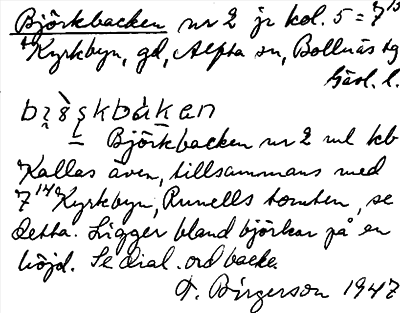 Björkbacken nr 2 jr kol. 5 = 7¹³
Kyrkbyn, gd, Alfta sn, Bollnäs tg
Gävl. l.
Björkbacken nr 2 ml kb
Kallas även, tillsammans med
7¹⁴ Kyrkbyn, Runells tomten, se
detta. Ligger bland björkar på en
höjd. Se dial. ord backe.
F. Birgerson 1947